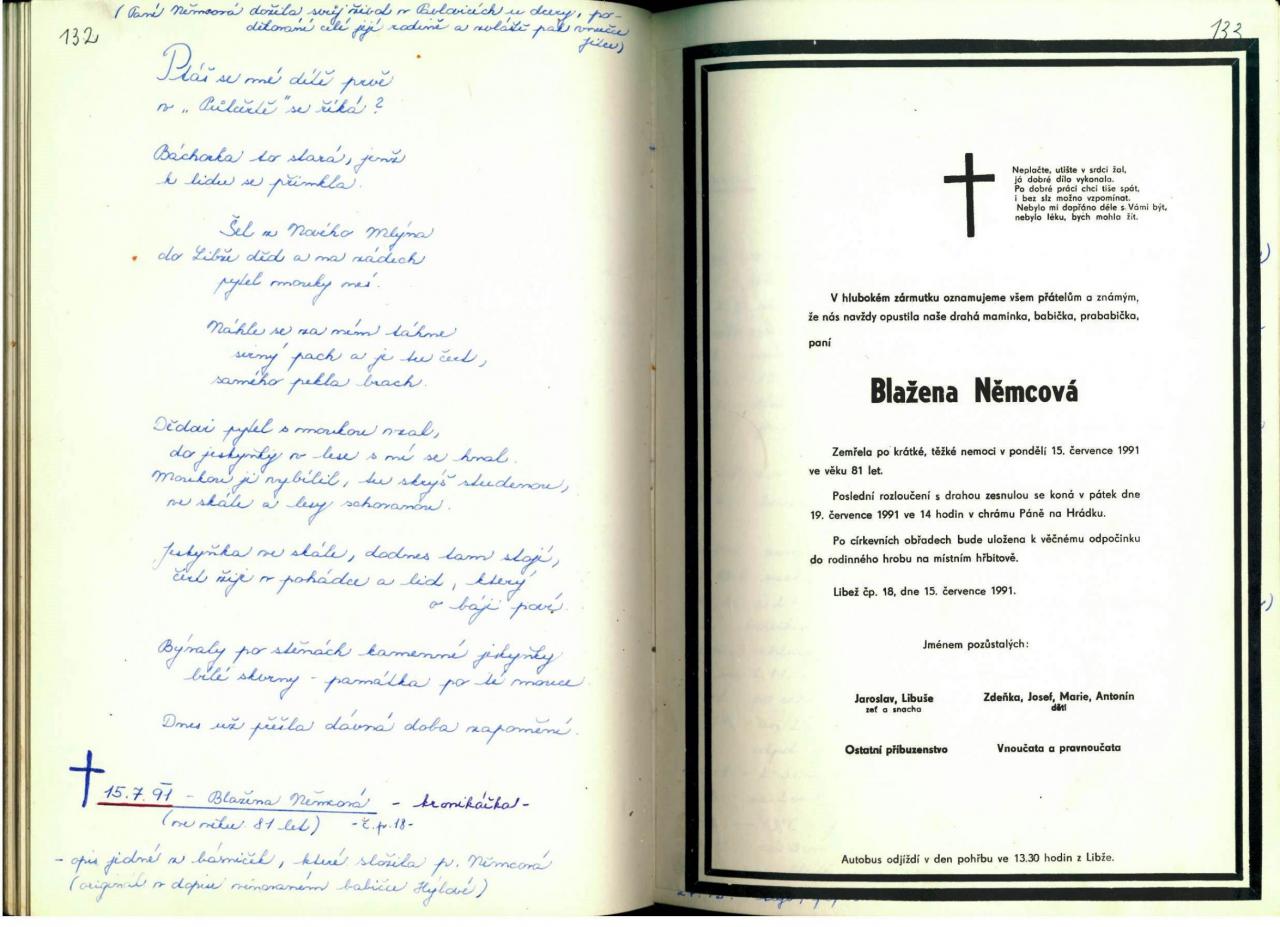 (Paní Němcová dožila svůj život v Pavlovicích u dcery, po-
děkování celé její rodině a zvláště pak vnučce
Jitce)
132
Ptáš se mé dítě proč
v „Průhrště" se říká?
Báchorka to stará, jenž
k lidu se přimkla.
Šel z Nového Mlýna
do Libže děd a na zádech
pytel mouky nes.
Náhle se za ním táhne
sirný pach a je tu čert,
samého pekla brach.
Dědovi pytel s moukou vzal,
do jeskyňky v lese s ní se hnal.
Moukou ji vybílil, tu skrýš studenou,
ve skále a lesy schovanou.
Jeskyňka ve skále, dodnes tam stojí,
čert žije v pohádce a lid, který
o báji poví.
Bývaly po stěnách kamenné jeskyňky
bílé skvrny - památka po té mouce.
Dnes už přešla dávná doba zapomění.
15.7.91 - Blažena Němcová - kronikářka -
(ve věku 81 let) - č.p. 18 -
- opis jedné z básniček, které složila p. Němcová
(originál v dopise věnovaném babičce Hýlové)
133
Neplačte, utište v srdci žal,
já dobré dílo vykonala.
Po dobré práci chci tiše spát,
i bez slz možno vzpomínat.
Nebylo mi dopřáno déle s Vámi být,
nebylo léku, bych mohla žít.
V hlubokém zármutku oznamujeme všem přátelům a známým,
že nás navždy opustila naše drahá maminka, babička, prababička,
paní
Blažena Němcová
Zemřela po krátké, těžké nemoci v pondělí 15. července 1991
ve věku 81 let.
Poslední rozloučení s drahou zesnulou se koná v pátek dne
19. července 1991 ve 14 hodin v chrámu Páně na Hrádku.
Po církevních obřadech bude uložena k věčnému odpočinku
do rodinného hrobu na místním hřbitově.
Libež čp. 18, dne 15. července 1991.
Jménem pozůstalých:
Jaroslav, Libuše
zeť a snacha
Zdeňka, Josef, Marie, Antonín
děti
Ostatní příbuzenstvo
Vnoučata a pravnoučata
Autobus odjíždí v den pohřbu ve 13.30 hodin z Libže.